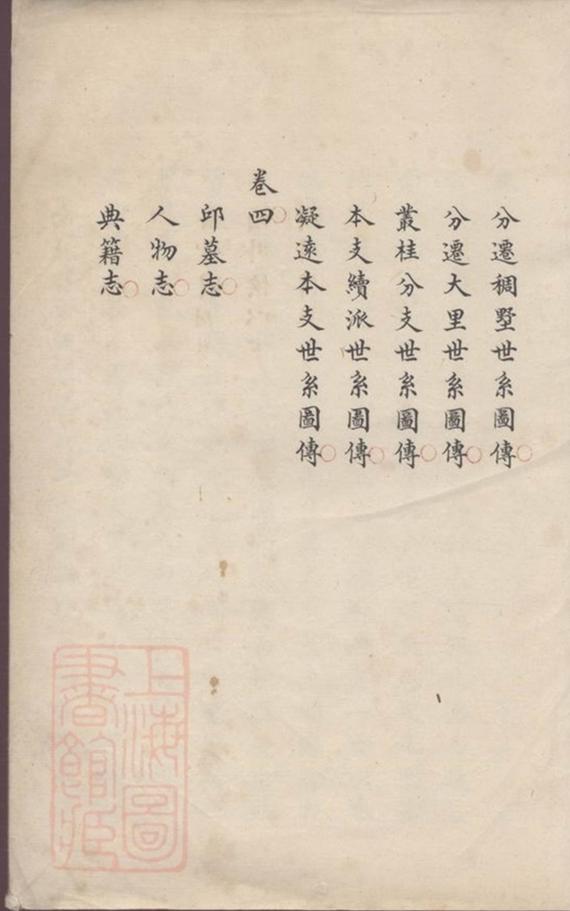 分遷稠墅世系圖傳
分遷大里世系圖傳
叢桂分支世系圖傳
本支續派世系圖傳
凝遠本支世系圖傳
卷四
邱墓志
人物志
典籍志
上海圖
書館藏